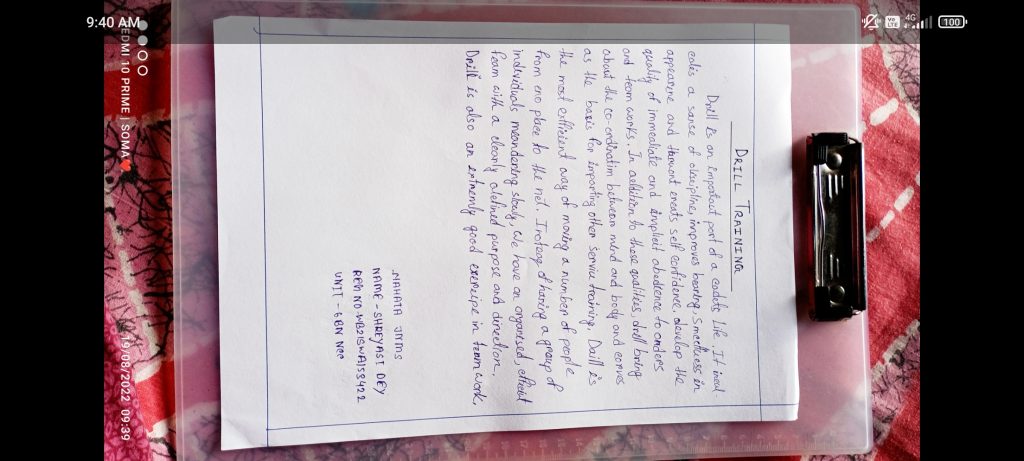 9:40 AM
Vo LTE
4G
100
DRILL TRAINING
Drill is an important part of a cadets life. It incul-
cates a sanse of discipline, improves bearing, smartness in
appearene and
quality of immediate and implicit obedience to orders
and team works. In addition to these qualities, drill bring
about the co-ordination between mind and body and
as the basis for imparting other service training. Daill is
the most efficient way of moving a number of people
from one place to the
individuals meandering slowly, We have an organised,
team with a clearly defined purpose and direction.
Drill is also an extremly good in team work,
NAHATA JNMS
NAME - SHREYASI DEY
UNIT - 6BN NCC
REDMI 10 PRIME | SOMA
19/08/2022 09:39